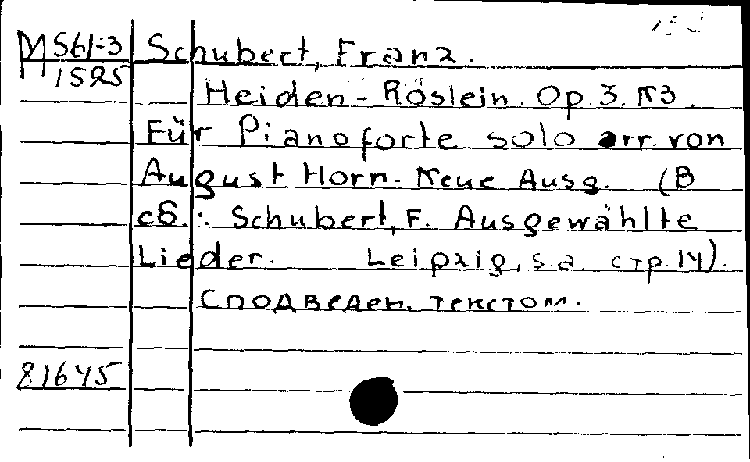 М 561-3 Schubert, Franz.
1525
Heiden-Röslein. Op. 3. N3.
Für Pianoforte solo arr. von
August Horn. Neue Ausg. (В
сб.: Schubert, F. Ausgewählte
Lieder. Leipzig, s.a. стр. 14).
С подведен. текстом.
81645